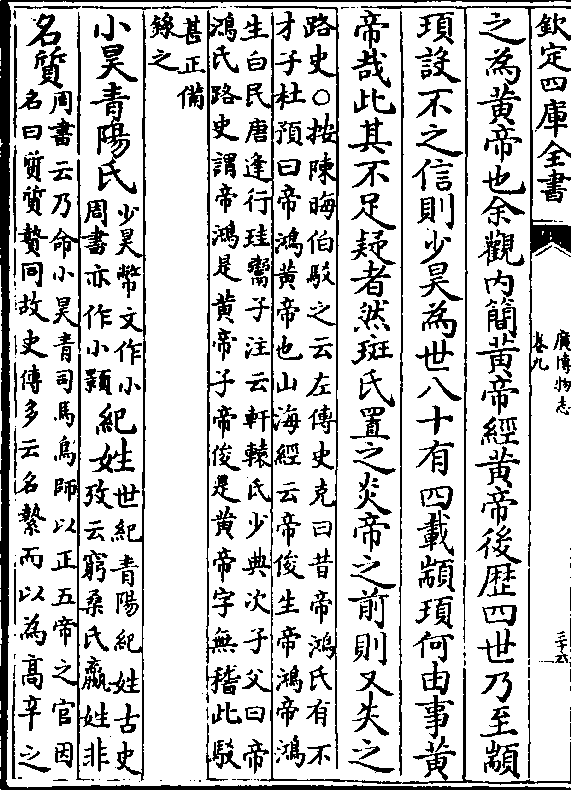 欽定四庫全書
廣博物志
卷九
之為黃帝也余觀內簡黃帝經黃帝後歴四世乃至顓
頊設不之信則少昊為世八十有四載顓頊何由事黃
帝哉此其不足疑者然班氏置之炎帝之前則又失之
路史○按陳晦伯駁之云左傳史克曰昔帝鴻氏有不
才子杜預曰帝鴻黃帝也山海經云帝俊生帝鴻帝鴻
生白民唐逢行珪鬻子注云軒轅氏少典次子父曰帝
鴻氏路史謂帝鴻是黃帝子帝俊是黃帝字無稽此駁
甚正備
錄之
小昊青陽氏
少昊幣文作小
周書亦作小顥
紀姓
世紀青陽紀姓古史
攷云窮桑氏嬴姓非
名質
周書云乃命小昊青司馬鳥師以正五帝之官因
名曰質質贄同故史傳多云名摯而以為高辛之